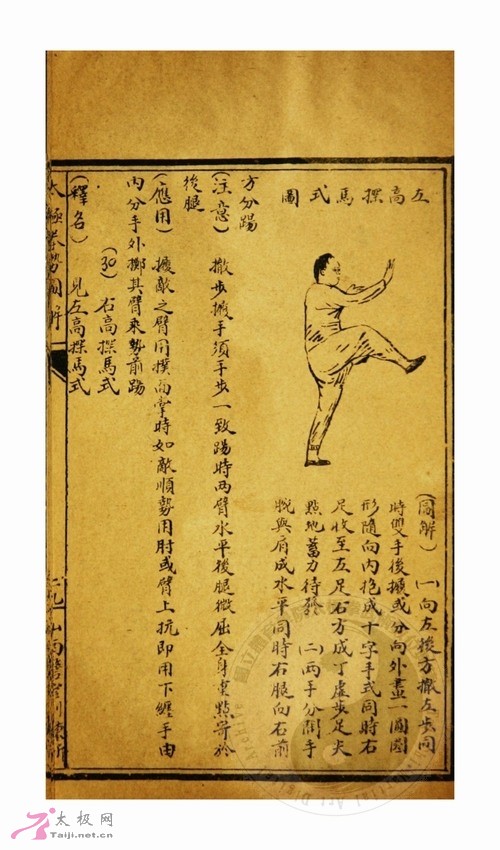 左高探馬式圖
(圖解) 一向左後方撤左步同
時雙手後攦或分向外畫一圓圈
形隨向内抱成十字手式同時右
足收至左足右方成丁虛步足尖
點地蓄力待發 (二兩手分開手
腕與肩成水平同時右腿向右前
方分踢
(注意) 撤步攦手須手步一致踢時兩臂水平後腿微屈全身重點寄於
後腿
(應用) 攦敵之臂用撲面掌時如敵順勢用肘或臂上抗即用下纏手由
内分手外擲其臂乘勢前踢
(30) 右高探馬式
(釋名) 見左高探馬式
太極拳勢圖解
太极网
Taiji.net.cn